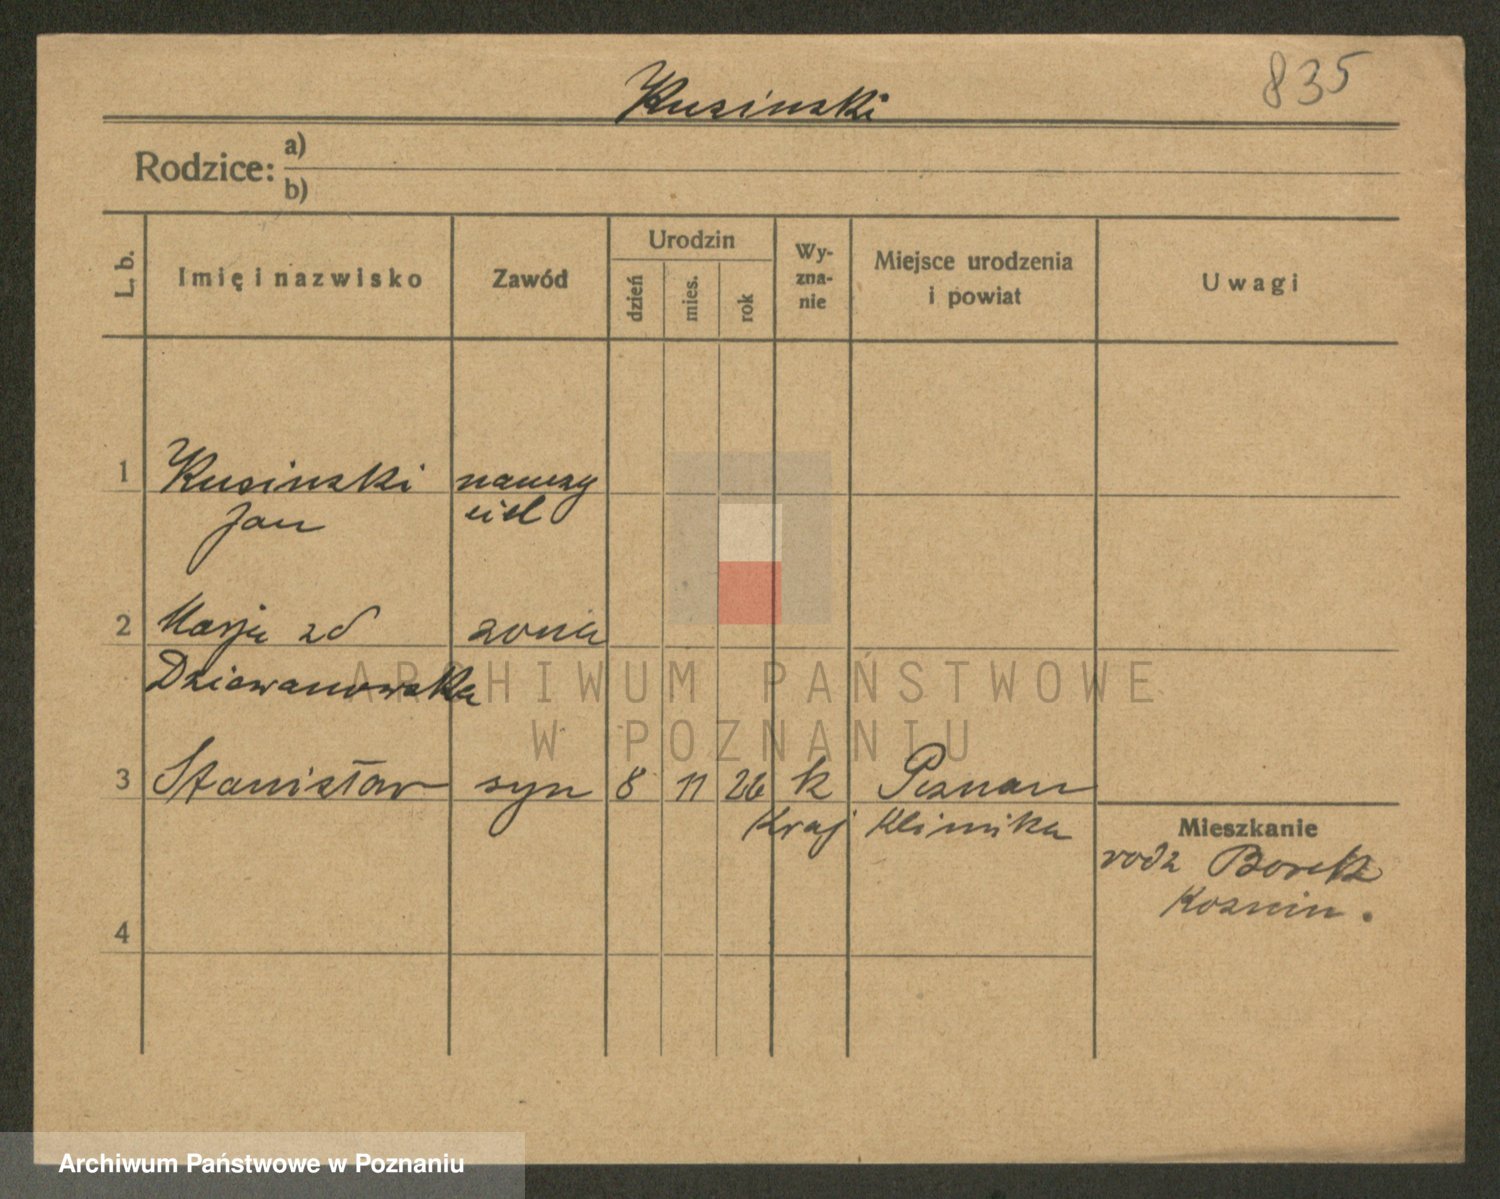 835
Kusinski
Rodzice: a)
b)
L. b.
Imię i nazwisko
Zawód
Urodzin
dzień
mies.
rok
Wy-
zna-
nie
Miejsce urodzenia
i powiat
Uwagi
1 Kusinski nauczy
Jan ciel
2 Marja zd zona
Dziewanowska
3 Stanisław syn 8 11 26 k Poznan
Kraj Klinika
Mieszkanie
rodz Borek
Kozmin.
4
ARCHIWUM PAŃSTWOWE
W POZNANIU
Archiwum Państwowe w Poznaniu